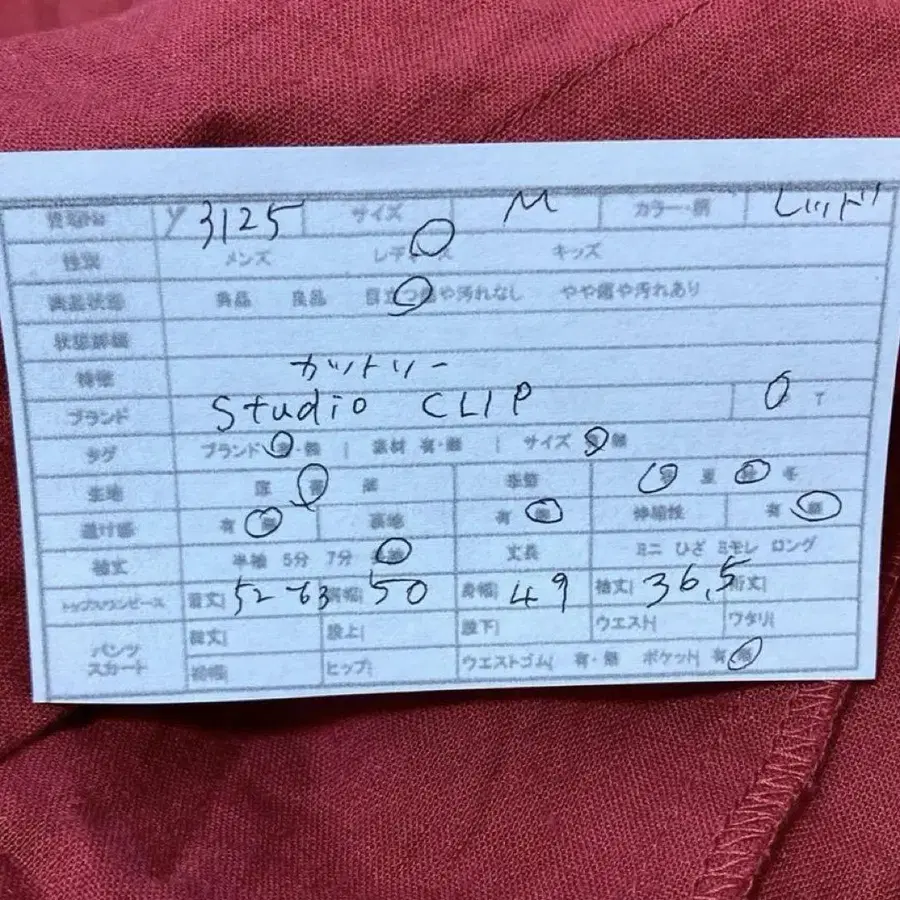 y 3125 サイズ M カラー・柄 レッド
性別 メンズ レディース キッズ
商品状態 美品 良品 目立つ傷や汚れなし やや傷や汚れあり
状態詳細
特徴 カットソー
ブランド Studio CLIP T
タグ ブランド 有・無 | 素材 有・無 | サイズ 有・無
生地 厚 普 薄 季節 春 夏 秋 冬
透け感 有 無 裏地 有 無 伸縮性 有 無
袖丈 半袖 5分 7分 長袖 丈長 ミニ ひざ ミモレ ロング
トップス/ワンピース 着丈| 52-63 肩幅| 50 身幅| 49 袖丈| 36.5 裄丈|
パンツ スカート 総丈| 股上| 股下| ウエスト| ワタリ|
裾幅| ヒップ| ウエストゴム| 有・無 ポケット| 有 無